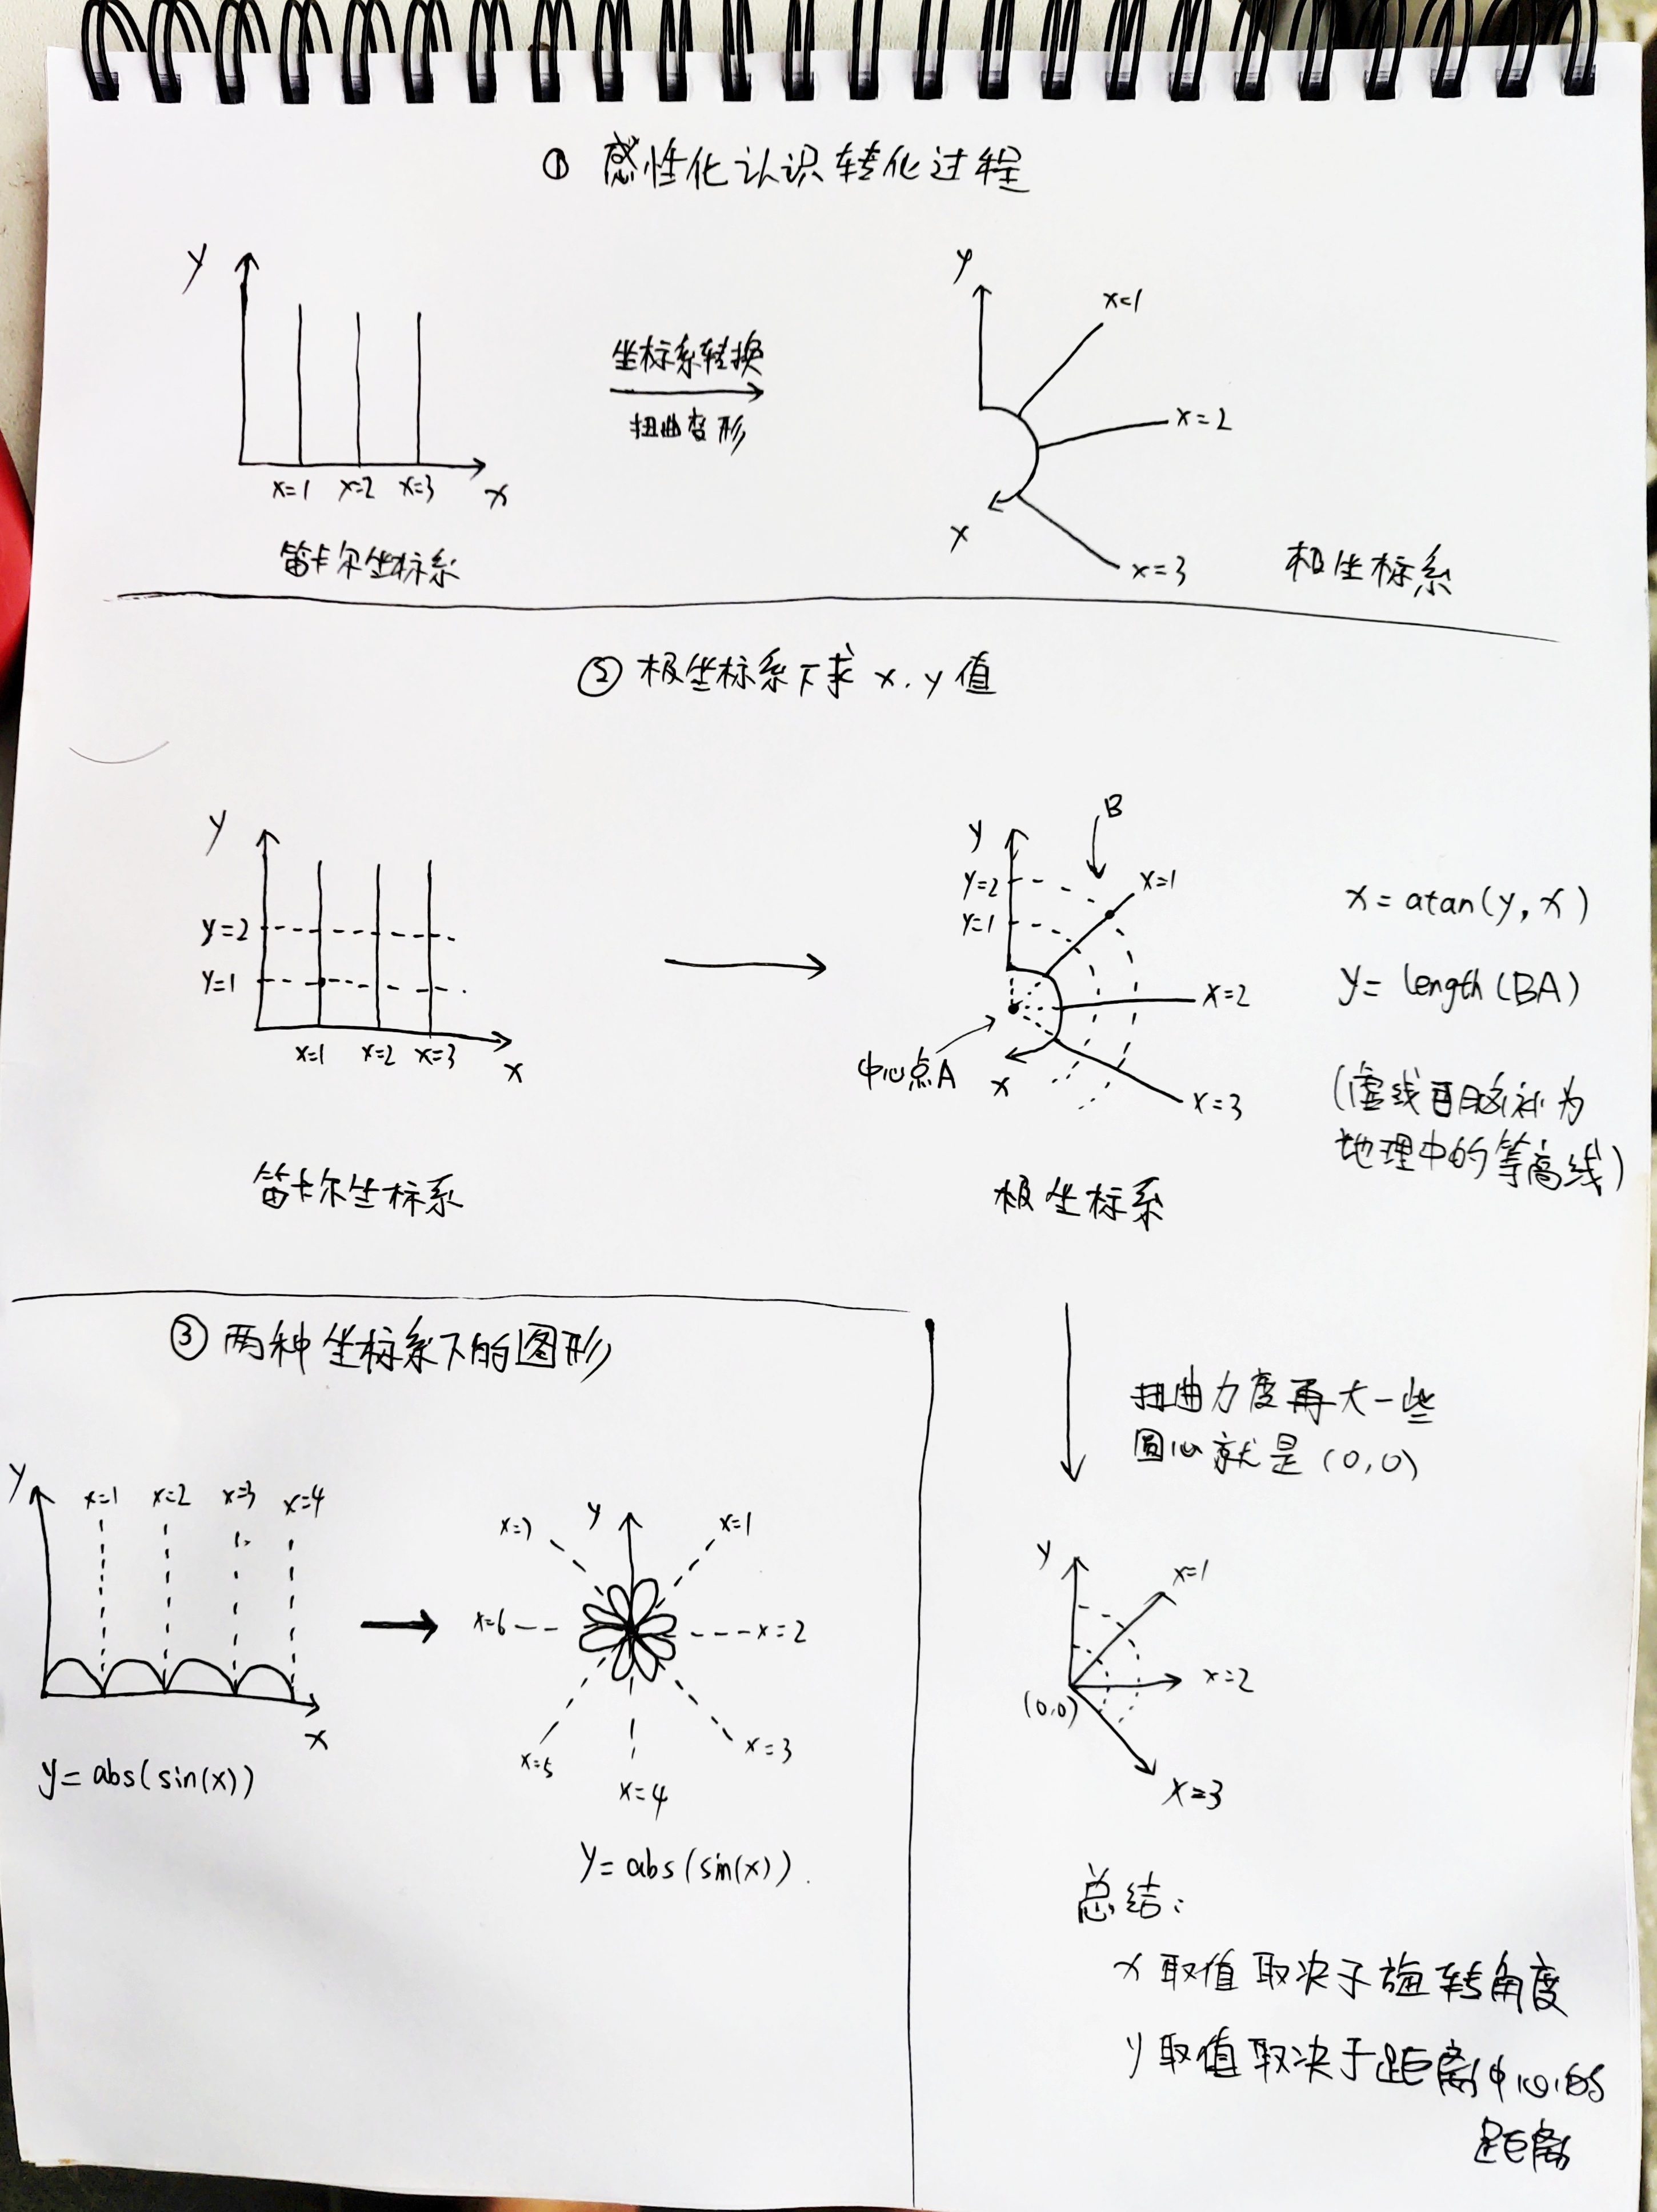 ① 感性化认识转化过程
y
x=1 x=2 x=3 x
笛卡尔坐标系
坐标系转换
扭曲变形
y
x=1
x=2
x
x=3
极坐标系
② 极坐标系下求 x, y 值
y
y=2
y=1
x=1 x=2 x=3 x
笛卡尔坐标系
B
y
y=2
y=1
x=1
x=2
x=3
x
中心点A
极坐标系
x = atan(y, x)
y = length(BA)
(虚线可脑补为
地理中的等高线)
扭曲力度再大一些
圆心就是 (0,0)
y
x=1
x=2
(0,0)
x=3
总结:
x 取值取决于旋转角度
y 取值取决于距离中心的
距离
③ 两种坐标系下的图形
y
x=1 x=2 x=3 x=4
x
y = abs(sin(x))
y
x=7
x=1
x=6
x=2
x=5
x=3
x=4
y = abs(sin(x)).